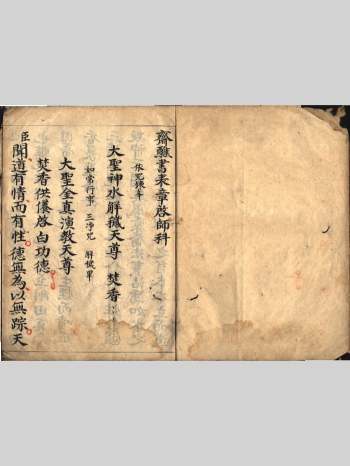 齋醮書表章啟師科
大聖神水解穢天尊 焚香
如常行事 三淨咒 解穢畢
大聖全真演教天尊
焚香供養啟白功德
臣聞道有情而有性德無為以無踪天